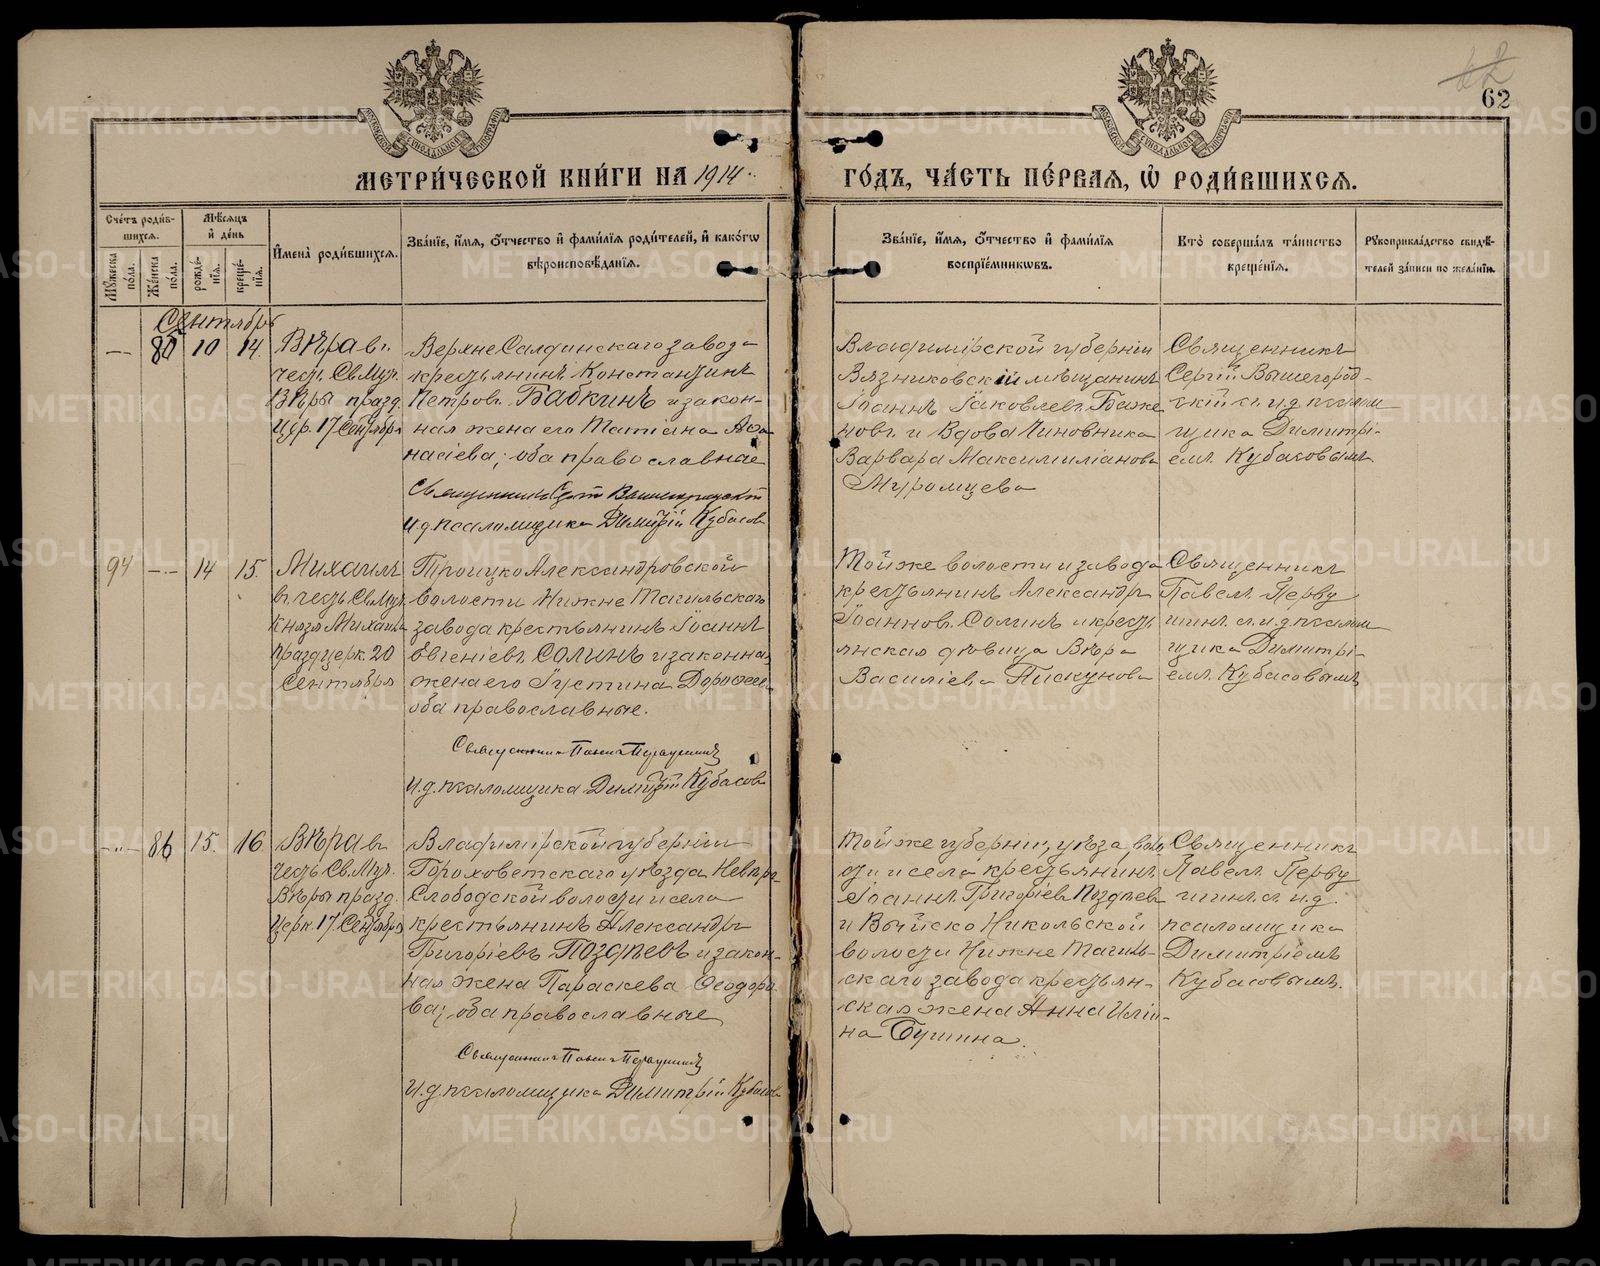 62
МЕТРИ́ЧЕСКОЙ КНИ́ГИ НА 1914
ГО́ДЪ, ЧА́СТЬ ПЕ́РВАЯ, Ѡ РОДИ́ВШИХСЯ.
Сче́тъ роди́в-
шихся.
Му́жеска
по́ла.
Же́нска
по́ла.
Мѣ́сяцъ
и де́нь
рожде́-
нія.
креще́-
нія.
Имена̀ роди́вшихся.
Зва́ніе, и́мя, ѻ́тчество и фами́лія роди́телей, и како́гѡ
вѣроисповѣ́данія.
Зва́ніе, и́мя, ѻ́тчество и фами́лія
воспріе́мникѡвъ.
Кто̀ соверша́лъ та́инство
креще́нія.
Рꙋкоприкла́дство свидѣ́-
телей за́писи по жела́нію.
Сентябрь
— 85 10 14.
Вѣра в.
честь Св. Муч.
Вѣры празд.
Цер. 17 Сентября
ВерхнеСалдинскаго завода
крестьянинъ Константинъ
Петров. Бабкинъ и закон-
ная жена его Татіана Афа
насіева; оба православные
Священникъ Сергій Вышегородскій
И. д. псаломщика Димитрій Кубасов
Владимірской губерніи
Вязниковскій мѣщанинъ
Іоаннъ Іаковлев. Баже
нов. и Вдова Чиновника
Варвара Максимиліанова
Муромцева
Священникъ
Сергій Вышегород-
скій с. и. д. псалом
щика Димитрі-
ем. Кубасовымъ
94 — 14 15.
Михаилъ
в. честь Св. Муч.
Князя Михаила
празд. церк. 20
Сентября
ТроицкоАлександровской
волости НижнеТагильскаго
завода крестьянинъ Іоаннъ
Евгеніев. Солинъ и законная
жена его Іустина Дорофеева
оба православные.
Священникъ Павелъ Первушинъ
И. д. псаломщика Димитрій Кубасов
Той же волости и завода
крестьянинъ Александръ
Іоаннов. Солинъ и кресть
янская дѣвица Вѣра
Василіева Пискунова
Священникъ
Павел. Перву
шинъ с. и. д. псалом
щика Димитрі-
ем. Кубасовымъ
— 86 15. 16
Вѣра в.
честь Св. Муч.
Вѣры празд.
Церк. 17. Сентября
Владимірской губерніи
Гороховетскаго уѣзда
Слободской волости и села
крестьянинъ Александръ
Григоріевъ Поздѣевъ и закон-
ная жена Параскева Ѳеодоро
ва; оба православные
Священникъ Павелъ Первушинъ
И. д. псаломщика Димитрій Кубасов
Той же губерніи, уѣзда, воло
сти и села крестьянинъ
Іоаннъ Григоріев. Поздѣев.
и Выйско Никольской
волости Нижне Тагиль-
скаго завода крестьян-
ская жена Анна Иліи-
на Бушина.
Священникъ
Павел. Перву
шинъ с. и. д.
псаломщика
Димитріемъ
Кубасовымъ.
METRIKI.GASO-URAL.RU